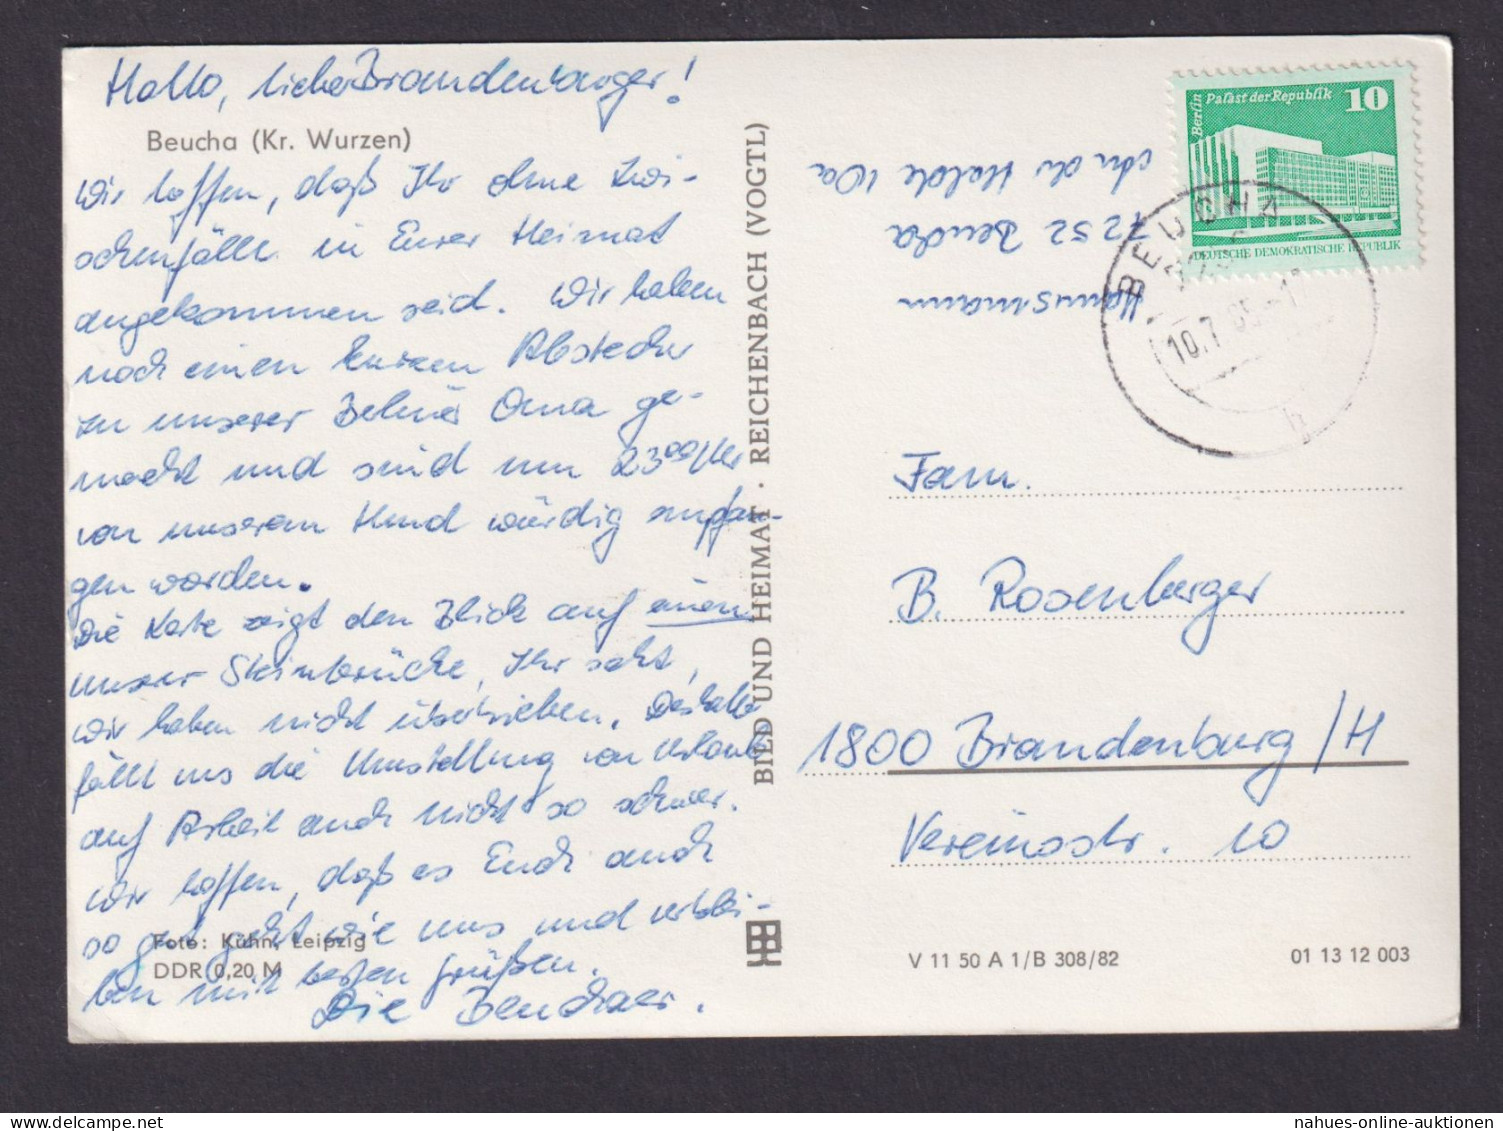 Hallo, liebe Brandenburger!
Beucha (Kr. Wurzen)
Wir hoffen, daß Ihr ohne Zwi-
schenfälle in Eurer Heimat
angekommen seid. Wir haben
noch einen kurzen Abstecher
zu unserer Oma ge-
macht und sind um 23⁰⁰ Uhr
von unserem Hund würdig empfan-
gen worden.
Die Karte zeigt den Blick auf einen
unser Steinbrüche, Ihr seht,
wir haben nicht übertrieben. Deshalb
fällt uns die Umstellung von Urlaub
auf Arbeit auch nicht so schwer.
Wir hoffen, daß es Euch auch
so gut geht wie uns und verblei-
ben mit besten Grüßen.
Die Beuchaer.
Foto: Kühn, Leipzig
DDR 0,20 M
BILD UND HEIMAT · REICHENBACH (VOGTL)
Hannusmann
7252 Beucha
An der Halde 10a
Berlin
Palast der Republik 10
DEUTSCHE DEMOKRATISCHE REPUBLIK
BEUCHA
10.7.85-17
Fam.
B. Rosenberger
1800 Brandenburg/H
Vereinsstr. 10
V 11 50 A 1/B 308/82
01 13 12 003
nahues-online-auktionen